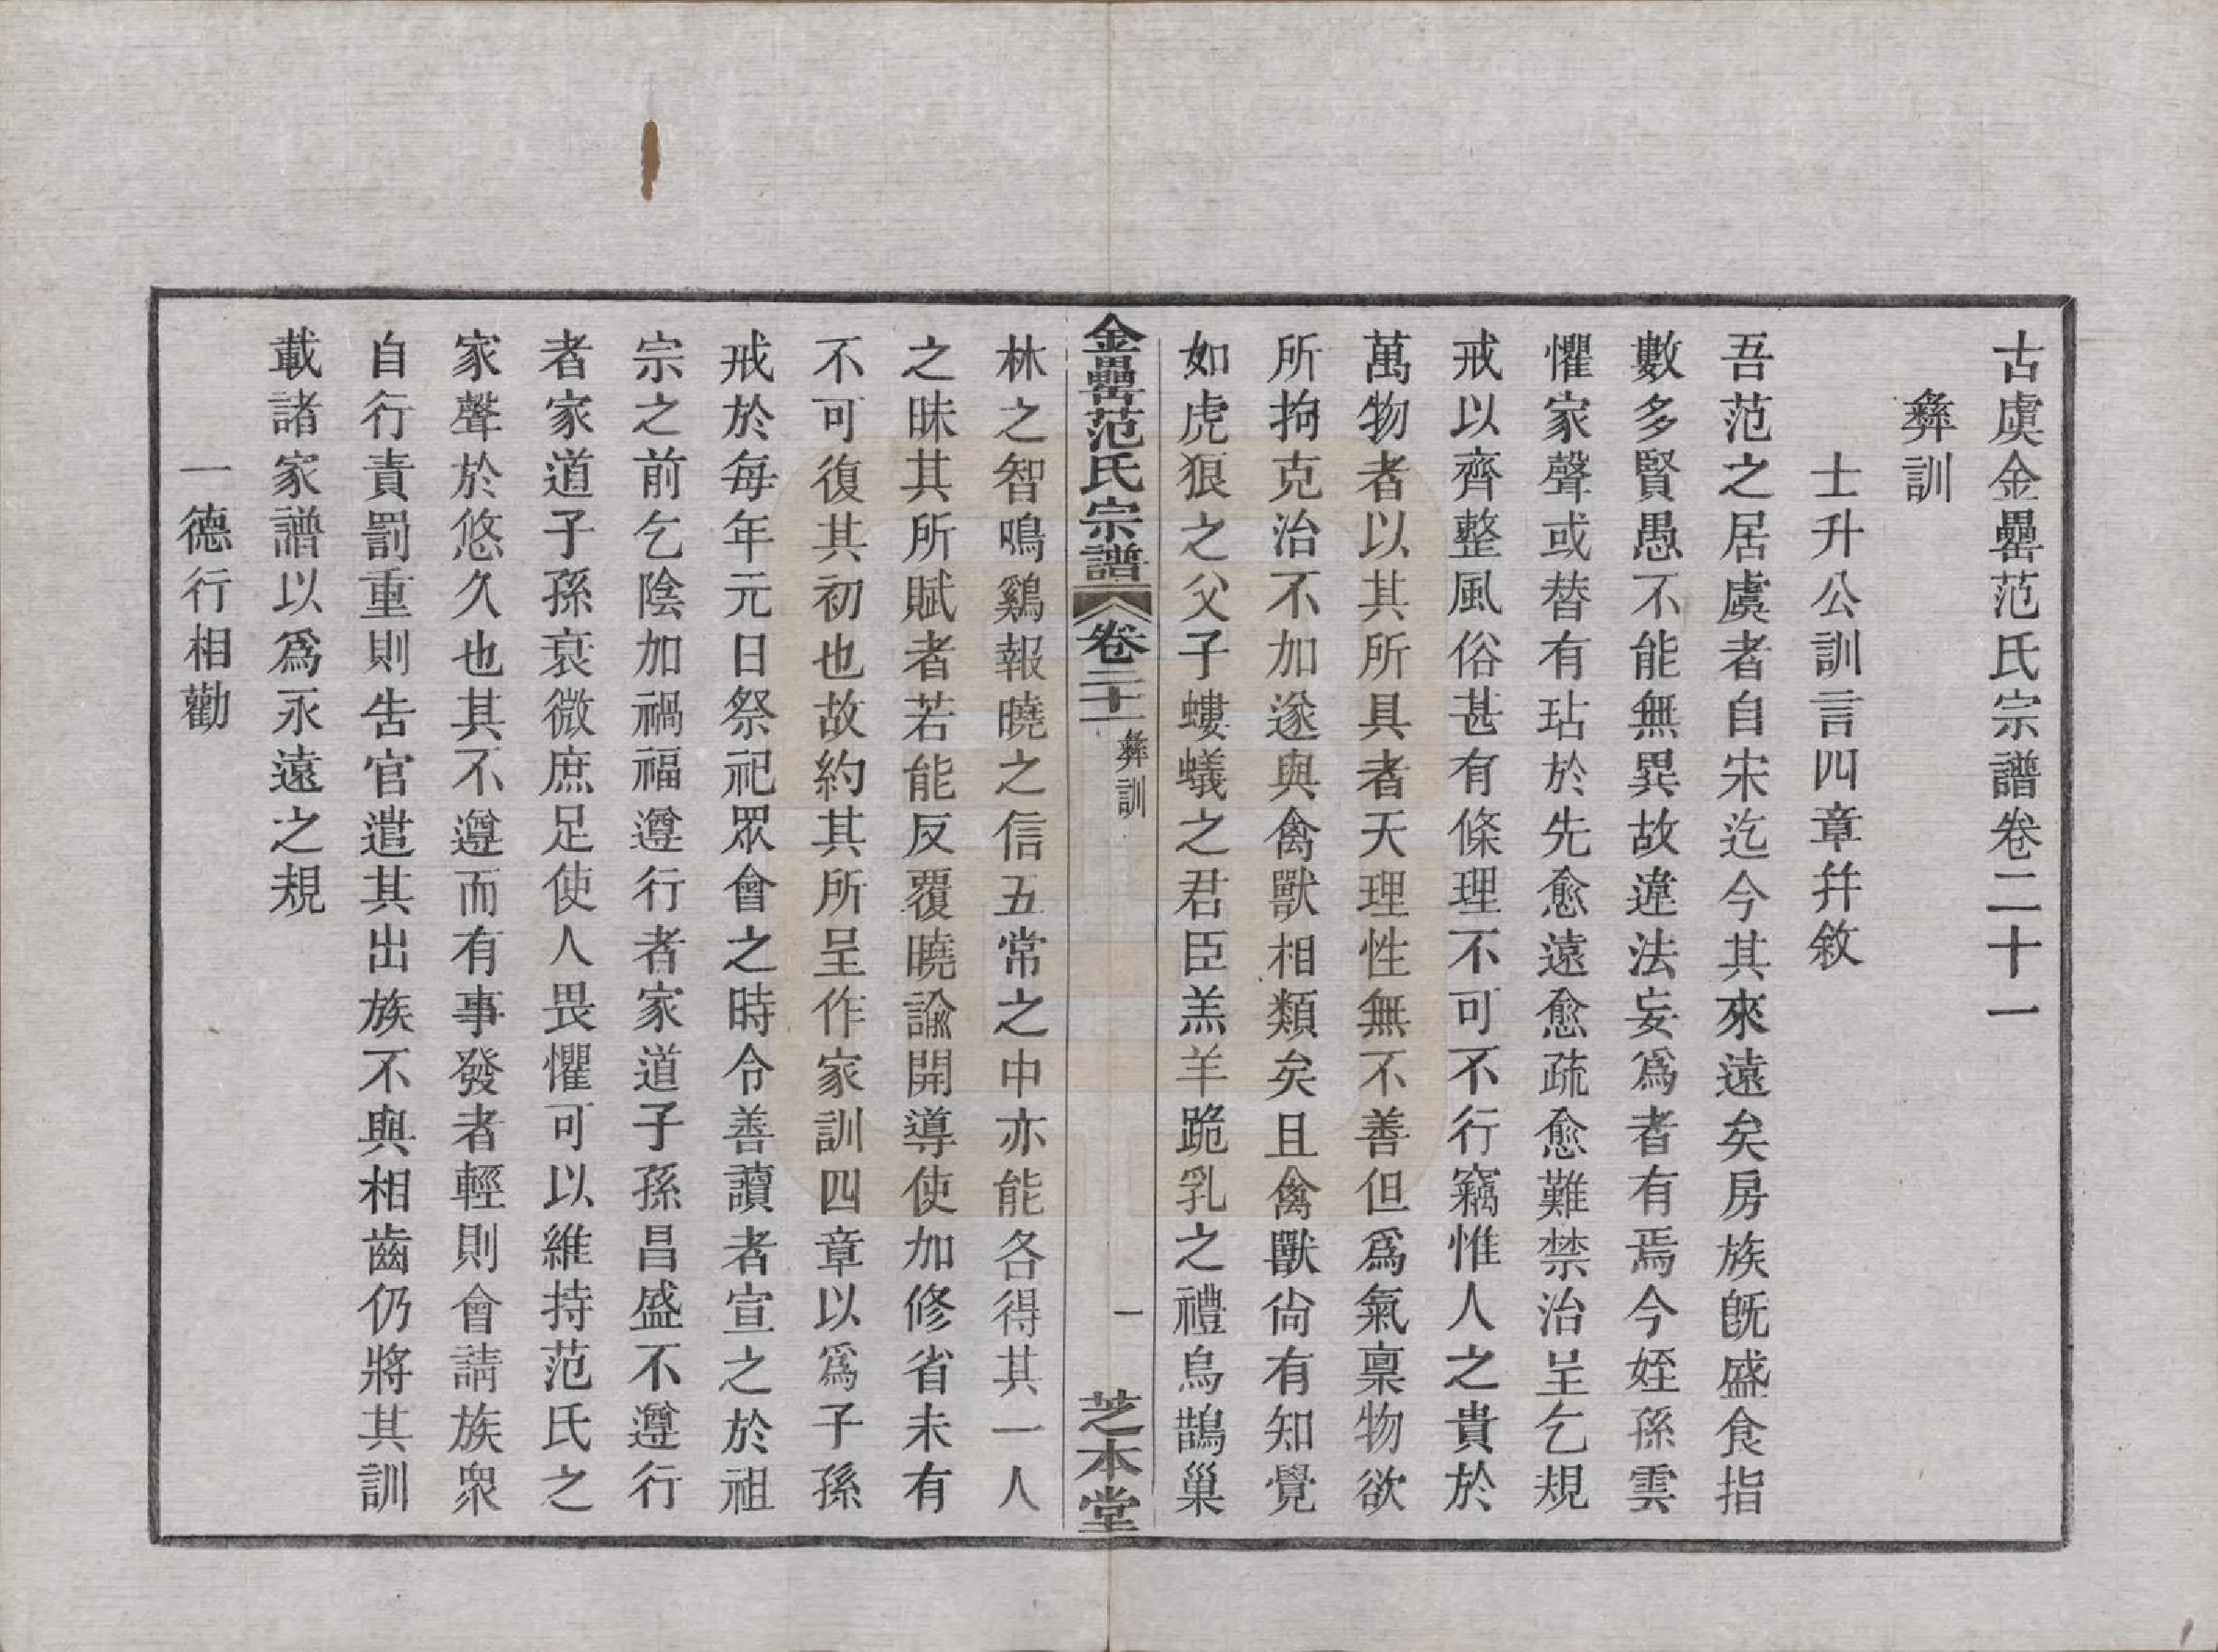 古虞金罍范氏宗譜卷二十一
彝訓
士升公訓言四章幷敘
吾范之居虞者自宋迄今其來遠矣房族旣盛食指
數多賢愚不能無異故違法妄爲者有焉今姪孫雲
懼家聲或替有玷於先愈遠愈疏愈難禁治呈乞規
戒以齊整風俗甚有條理不可不行竊惟人之貴於
萬物者以其所具者天理性無不善但爲氣稟物欲
所拘克治不加遂與禽獸相類矣且禽獸尙有知覺
如虎狼之父子螻蟻之君臣羔羊跪乳之禮烏鵲巢
金罍范氏宗譜 卷二十一 彝訓 一 芝本堂
林之智鳴鷄報曉之信五常之中亦能各得其一人
之昧其所賦者若能反覆曉諭開導使加修省未有
不可復其初也故約其所呈作家訓四章以爲子孫
戒於每年元日祭祀眾會之時令善讀者宣之於祖
宗之前乞陰加禍福遵行者家道子孫昌盛不遵行
者家道子孫衰微庶足使人畏懼可以維持范氏之
家聲於悠久也其不遵而有事發者輕則會請族衆
自行責罰重則吿官遣其出族不與相齒仍將其訓
載諸家譜以爲永遠之規
一德行相勸